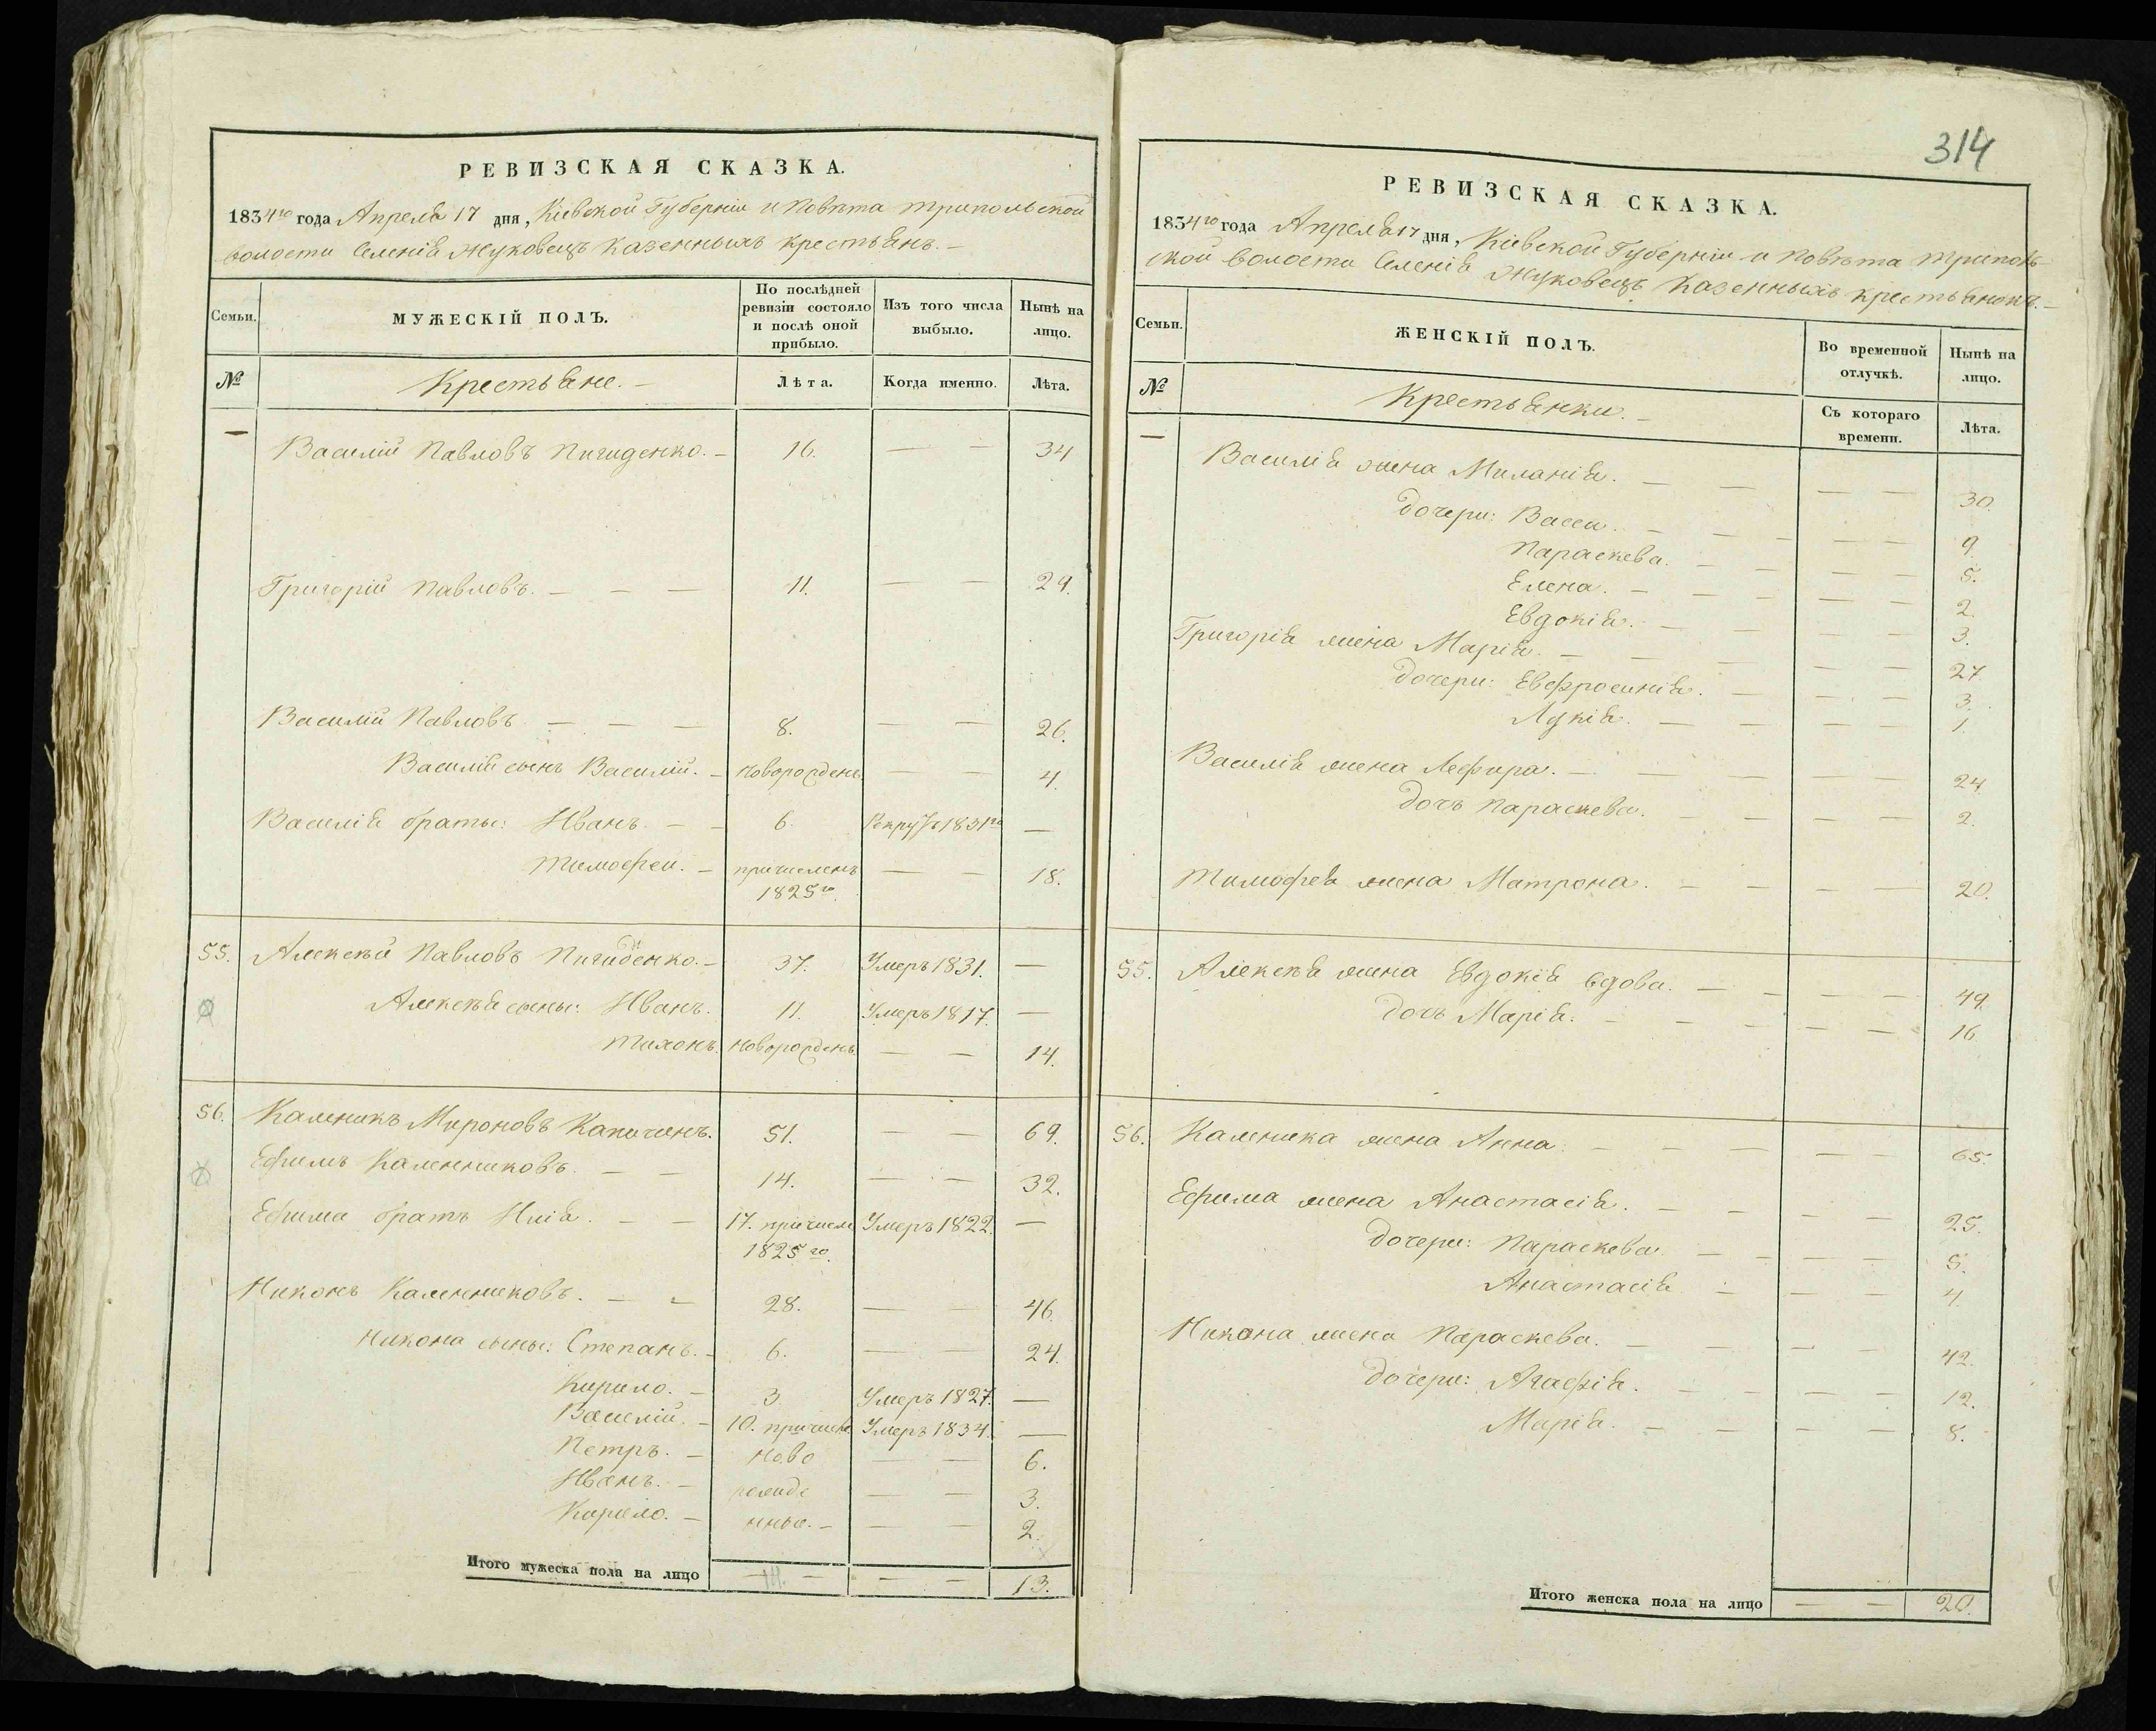 РЕВИЗСКАЯ СКАЗКА.
1834го года Апреля 17 дня, Кіевской Губерніи и Повѣта Трипольской
волости Селенія Жуковецъ Казенныхъ крестьянъ. —
Семьи. МУЖЕСКІЙ ПОЛЪ. По послѣдней ревизіи состояло и послѣ оной прибыло. Изъ того числа выбыло. Нынѣ на лицо.
№ Крестьяне. — Лѣта. Когда именно. Лѣта.
— Василій Павловъ Пигиденко. — 16. — — 34
Григорій Павловъ. — — — 11. — — 29.
Василій Павловъ — — — 8. — — 26.
Василій сынъ Василій. — новорожденъ — — 4.
Василія братья: Иванъ. — — 6. Рекрутъ 1831го —
Тимофей. — причисленъ — — 18.
1825го.
55. Алексѣй Павловъ Пигиденко. — 37. Умеръ 1831. —
Алексѣя сыны: Иванъ. 11. Умеръ 1817. —
Тихонъ. новорожденъ — — 14.
56. Каленикъ Мироновъ Капиченъ. 51. — — 69.
Ефимъ Каленниковъ. — — 14. — — 32.
Ефима братъ Илія. — — 17. причисле Умеръ 1822. —
1825го.
Никонъ Каленниковъ. — — 28. — — 46.
Никона сыны: Степанъ. — 6. — — 24.
Кирило. — 3. Умеръ 1827. —
Василій. — 10. причисле Умеръ 1834. —
Петръ. — ново — — 6.
Иванъ. — рожде — — 3.
Кирило. — нные. — — — 2.
Итого мужеска пола на лицо — — — — 13.
314
РЕВИЗСКАЯ СКАЗКА.
1834го года Апреля 17 дня, Кіевской Губерніи и Повѣта Триполь-
ской волости Селенія Жуковецъ Казенныхъ крестьянокъ. —
Семьи. ЖЕНСКІЙ ПОЛЪ. Во временной отлучкѣ. Нынѣ на лицо.
№ Крестьянки. — Съ котораго времени. Лѣта.
— Василія жена Миланія. — — — — 30.
Дочери: Васса. — — — — — 9.
Параскева. — — — — 5.
Елена. — — — — — 2.
Евдокія. — — — — 3.
Григорія жена Марія. — — — — — 27
Дочери: Евфросинія. — — — — 3.
Лукія. — — — — — 1.
Василія жена Лефира. — — — — — 24
Дочь Параскева. — — — 2.
Тимофея жена Матрона. — — — — 20.
55. Алексѣя жена Евдокія вдова. — — — — 49.
Дочь Марія. — — — — — 16
56. Каленика жена Анна. — — — — — 65.
Ефима жена Анастасія. — — — — — 25.
Дочери: Параскева. — — — — 5.
Анастасія — — — 4.
Никона жена Параскева. — — — — — 42.
Дочери: Агафія. — — — — — 12.
Марія. — — — — 8.
Итого женска пола на лицо — — 20.